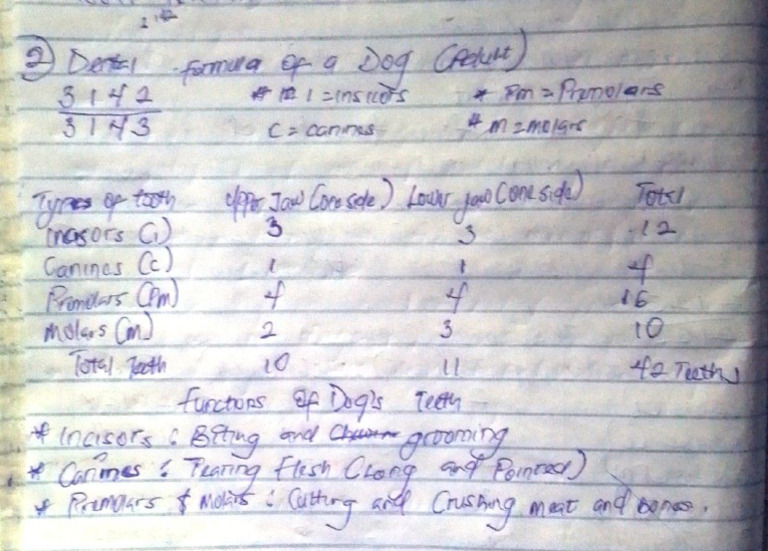 ② Dental formula of a Dog (Adult)
3 1 4 2 * I = insicors * Pm = Premolars
3 1 4 3 C = canines * m = molars
Types of tooth Upper Jaw (one side) Lower jaw (one side) Total
Incisors (i) 3 3 12
Canines (c) 1 1 4
Premolars (Pm) 4 4 16
Molars (m) 2 3 10
Total Teeth 10 11 42 Teeth
Functions of Dog's Teeth
* Incisors : Biting and grooming
* Canines : Tearing flesh (Long and Pointed)
* Premolars & Molars : Cutting and Crushing meat and bones.